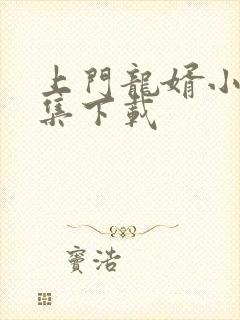 上門龍婿小
集下載
竇浩